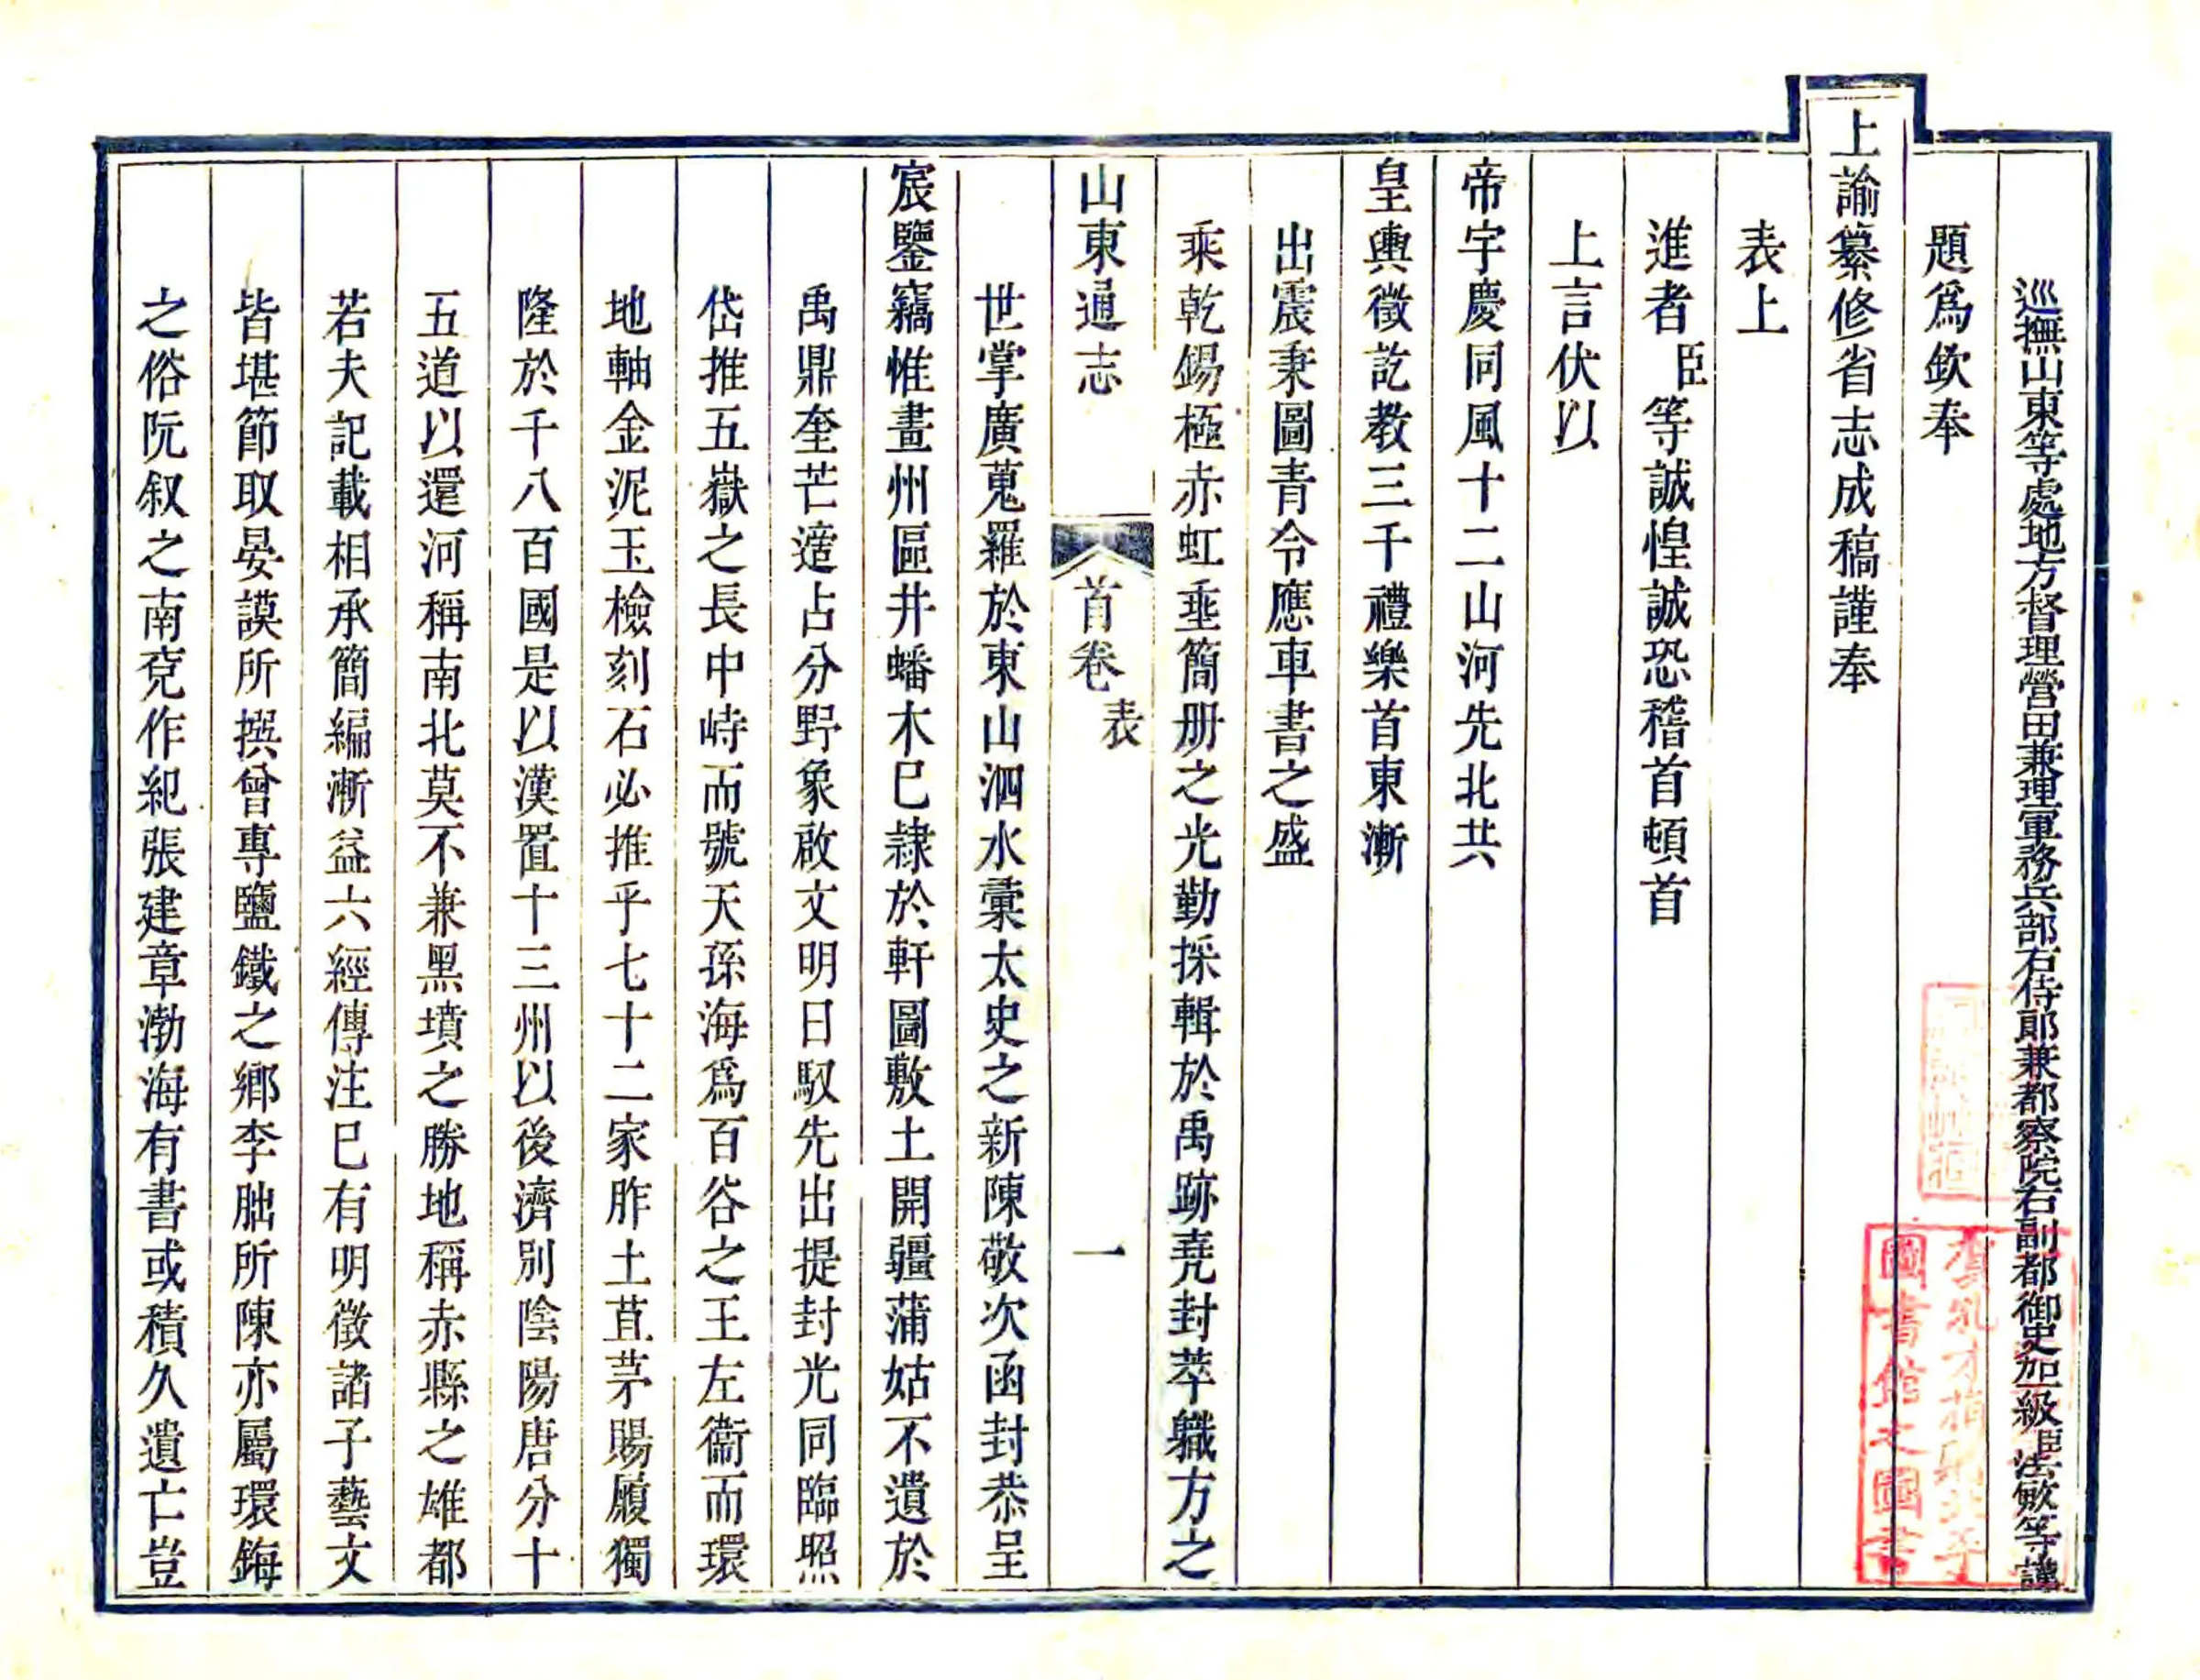 巡撫山東等處地方督理營田兼理軍務兵部右侍郞兼都察院右副都御史加一級臣法敏等謹
題爲欽奉
上諭纂修省志成稿謹奉
表上
進者臣等誠惶誠恐稽首頓首
上言伏以
帝宇慶同風十二山河先北共
皇輿徵訖敎三千禮樂首東漸
出震秉圖靑令應車書之盛
乘乾錫極赤虹垂簡册之光勤採輯於禹跡堯封萃職方之
山東通志 首卷 表 一
世掌廣蒐羅於東山泗水彙太史之新陳敬次函封恭呈
宸鑒竊惟畫州區井蟠木已隷於軒圖敷土開疆蒲姑不遺於
禹鼎奎芒遙占分野象啟文明日馭先出提封光同臨照
岱推五嶽之長中峙而號天孫海爲百谷之王左衞而環
地軸金泥玉檢刻石必推乎七十二家胙土苴茅賜履獨
隆於千八百國是以漢置十三州以後濟別陰陽唐分十
五道以還河稱南北莫不兼黑墳之勝地稱赤縣之雄都
若夫記載相承簡編漸益六經傳注已有明徵諸子藝文
皆堪節取晏謨所撰曾專鹽鐵之鄉李朏所陳亦屬環鋂
之俗阮叙之南兗作紀張建章渤海有書或積久遺亡豈
圖書館之圖書